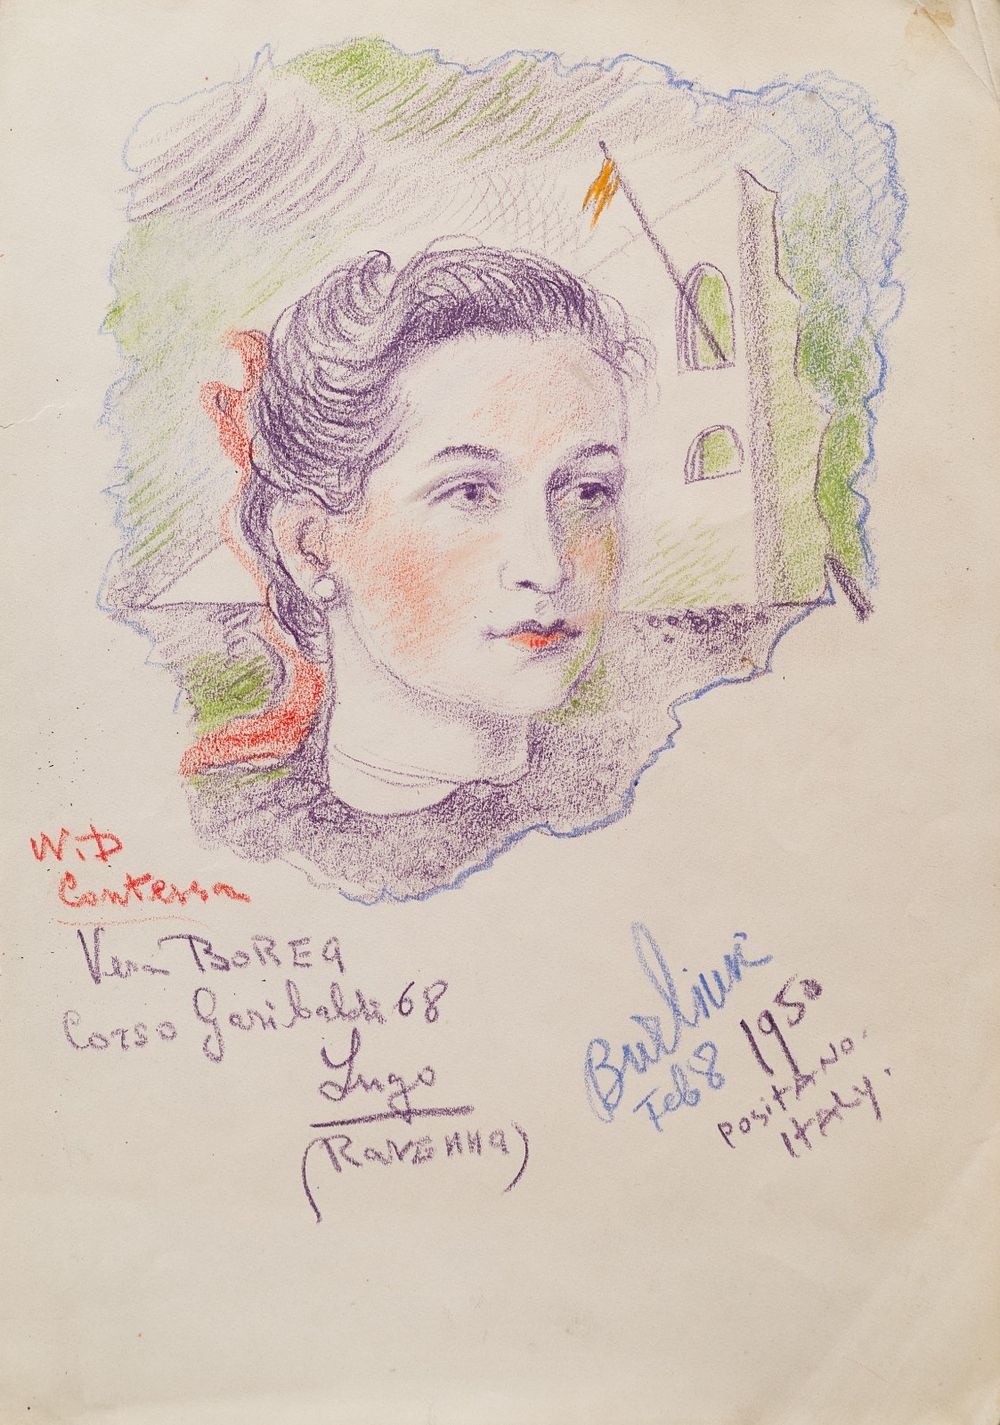 W.D
Contessa
Vera BOREA
Corso Garibaldi 68
Lugo
(RAVENNA)
Burliuk
Feb 8 1950
POSITANO.
ITALY.